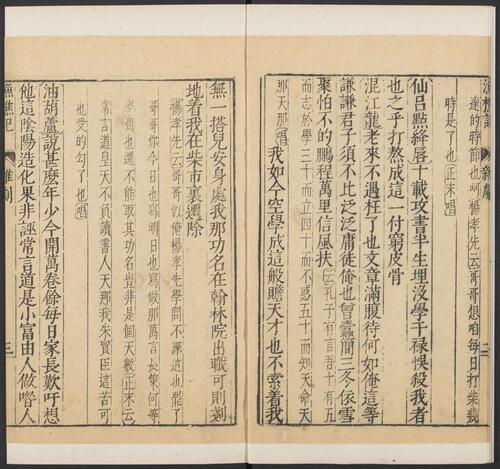 漁樵記 雜劇 二
達的時節也呵楊孝先云哥哥想咱每日打柴幾
時是了也正末唱
仙呂點絳唇十載攻書半生埋沒學干祿悞殺我者
也之乎打熬成這一付窮皮骨
混江龍老來不遇枉了也文章滿腹待何如俺這等
謙謙君子須不比泛泛庸徒俺也曾蠹簡三冬依雪
聚怕不的鵬程萬里信風扶云孔子有言吾十有五
而志於學三十而立四十而不惑五十而知天命天
那天那唱我如今空學成這般贍天才也不索着我
無一搭兒安身處我那功名在翰林院出職可則剗
地着我在柴市裏遷除
楊孝先云哥哥似俺楊孝先學問不深這也罷了
哥哥你今日也寫明日也寫做那萬言長策何等
學問也還不能取其功名豈非是個天數正末云
常言道皇天不負讀書人天那我朱買臣這苦可
也受的勾了也唱
油胡蘆說甚麽年少今開萬卷餘每日家長歎吁想
他這陰陽造化果非誣常言道是小富由人做喒人
漁樵記 雜劇 三